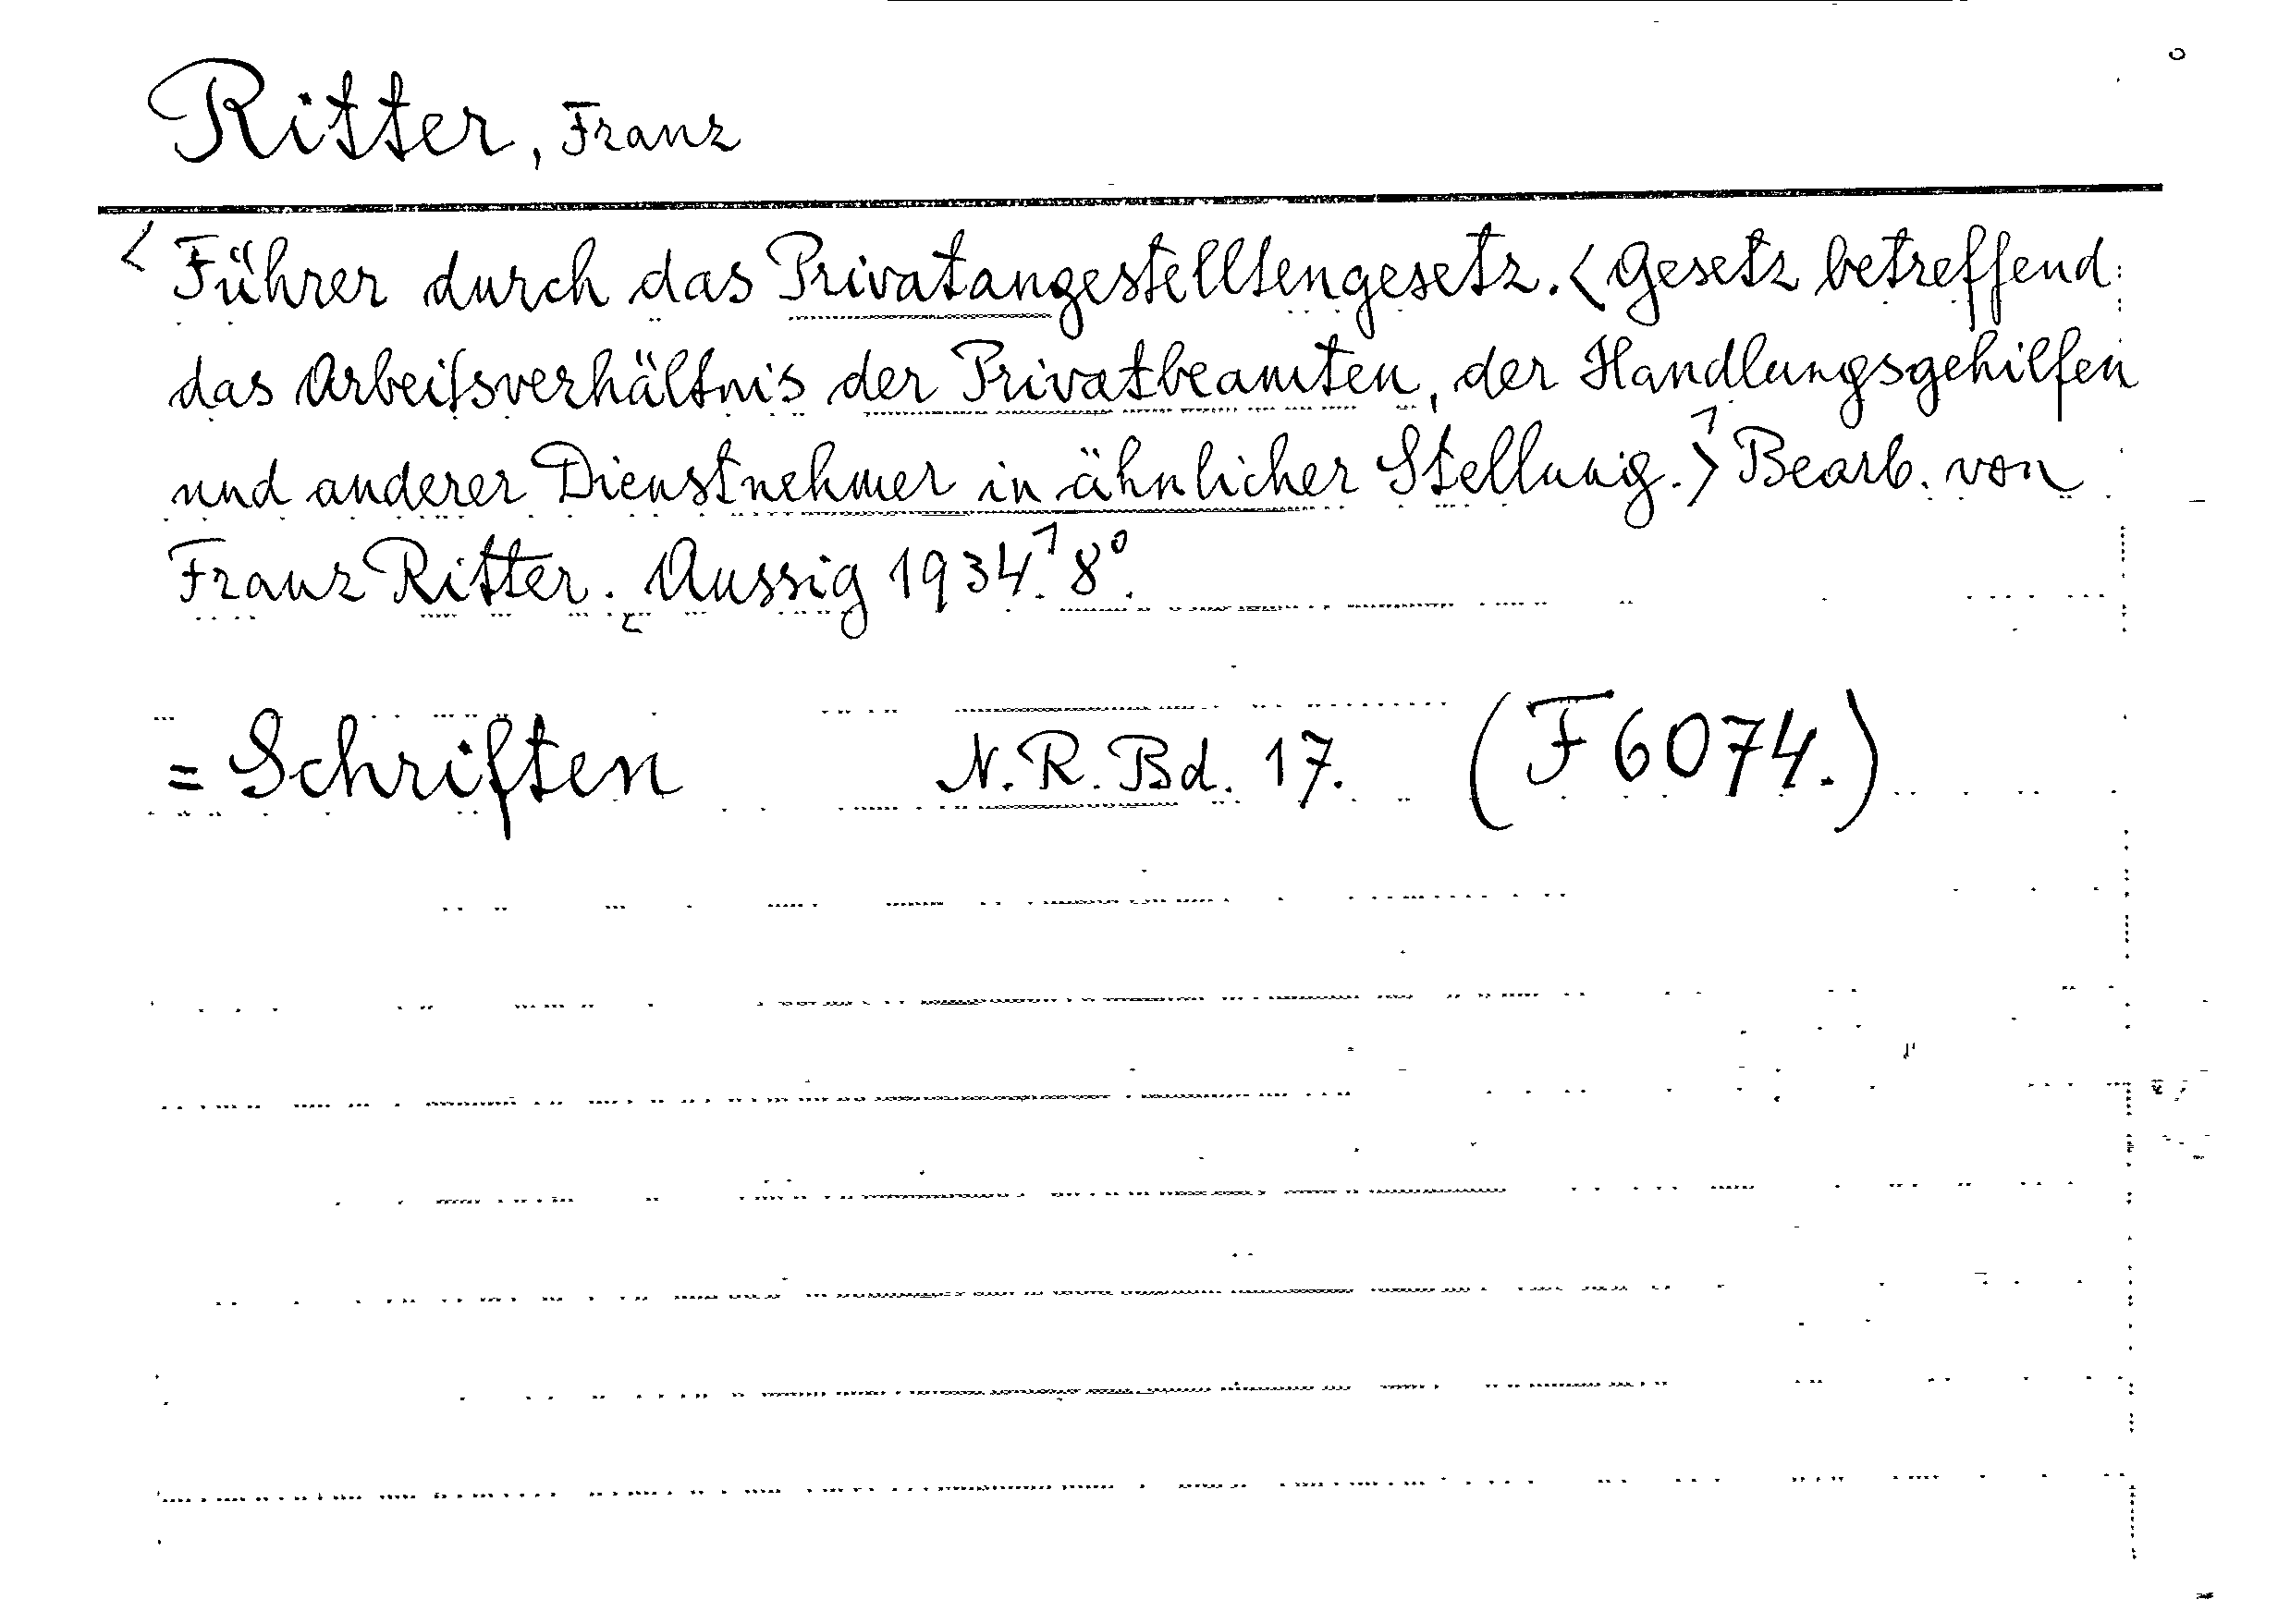 Ritter, Franz
Führer durch das Privatangestelltengesetz. <Gesetz betreffend
das Arbeitsverhältnis der Privatbeamten, der Handlungsgehilfen
und anderer Dienstnehmer in ähnlicher Stellung.> Bearb. von
Franz Ritter. Aussig 1934. 8°.
= Schriften N. R. Bd. 17. (F 6074.)